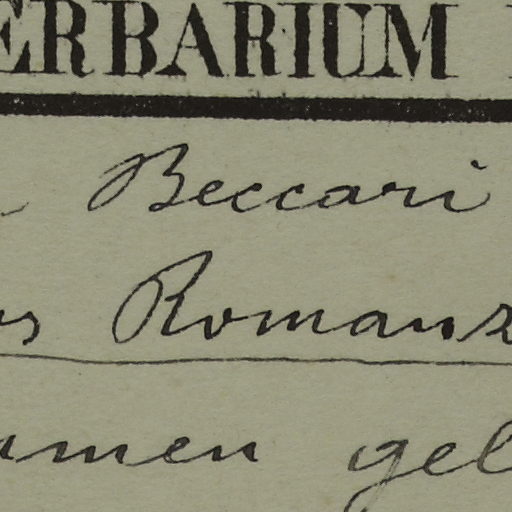 ERBARIUM
Beccari
os Romanz
amen gel